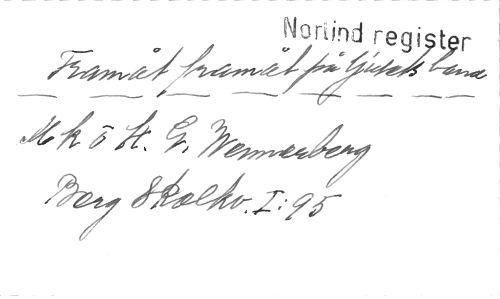 Norlind register
Framåt framåt på ljusets bana
M k ö st. G. Wennerberg
Berg Skolkv. I:95